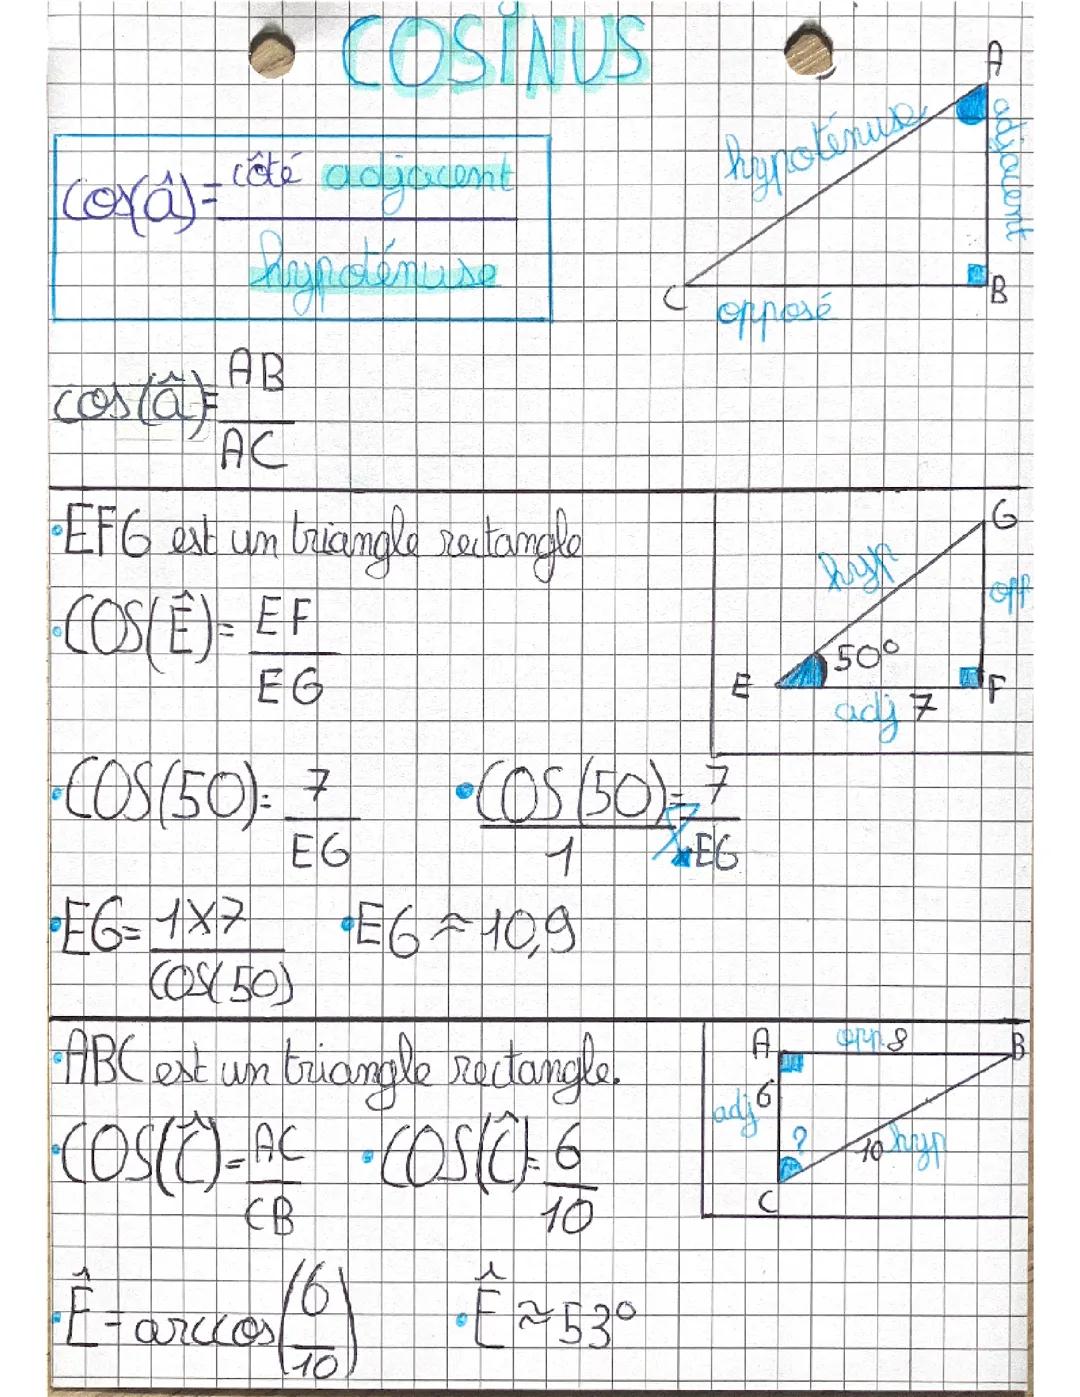 COSINUS
cos(â) = côté adjacent
hypoténuse
A
hypoténuse
adjacent
C
opposé
B
cos(â) = AB
AC
•EFG est un triangle rectangle
•COS(Ê) = EF
EG
G
hyp
opp
50°
E
F
adj 7
•COS(50) = 7
EG
•COS(50) = 7
1
EG
•EG = 1x7
COS(50)
•EG ≈ 10,9
•ABC est un triangle rectangle.
•COS(Ĉ) = AC
CB
•COS(Ĉ) = 6
10
A
opp 8
B
adj 6
?
10 hyp
C
•Ê = arccos(6
10)
•Ê ≈ 53°